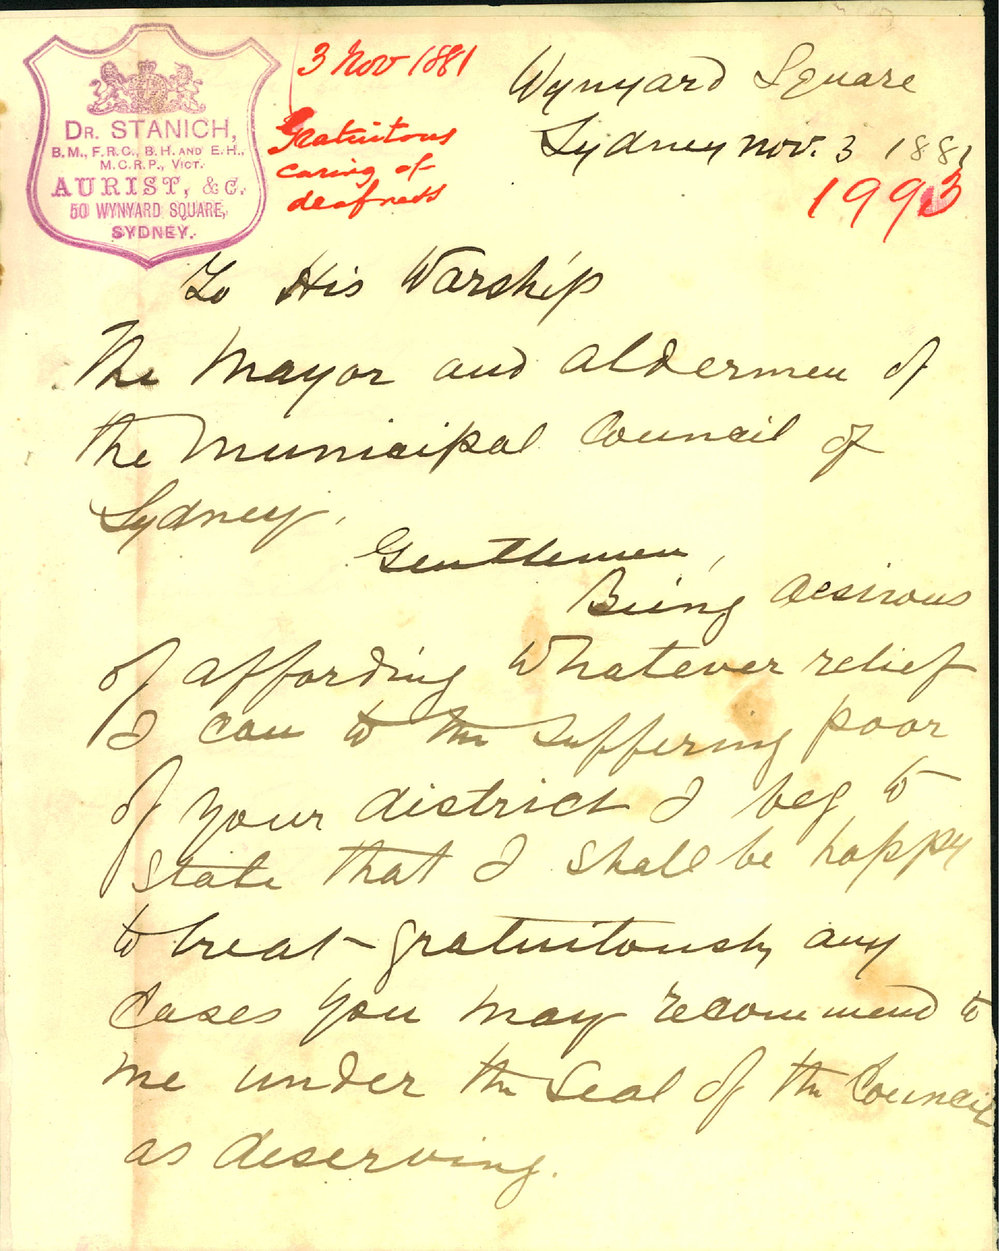 DR. STANICH,
B.M., F.R.C., B.H. AND E.H.,
M.C.R.P., VICT.
AURIST, &C.
50 WYNYARD SQUARE,
SYDNEY.
3 Nov 1881
Gratuitous
caring of
deafness
Wynyard Square
Sydney Nov. 3 1881
1993
To His Warship
The Mayor and Aldermen of
the Municipal Council of
Sydney.
Gentlemen,
Being desirous
of affording whatever relief
I can to the suffering poor
of your district I beg to
state that I shall be happy
to treat gratuitously any
cases you may recommend to
me under the Seal of the Council
as deserving.